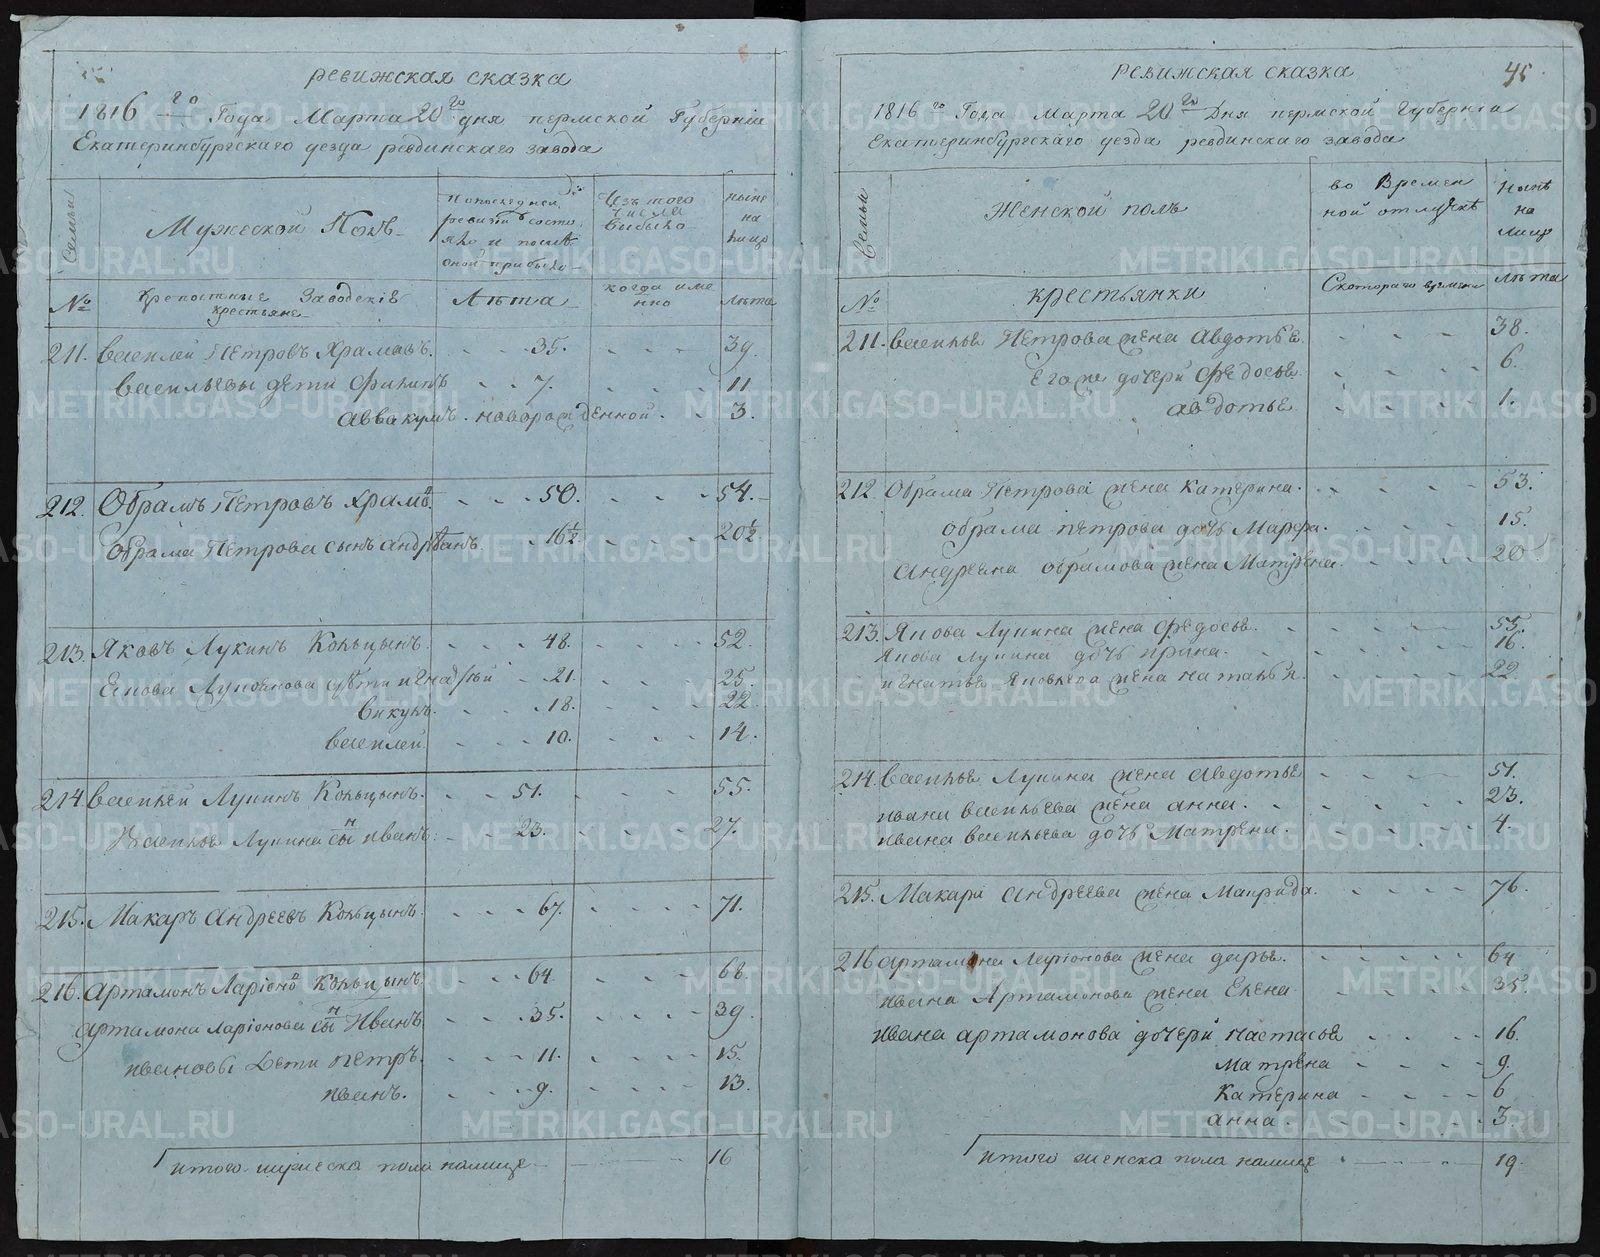 ревижская сказка
1816 го Года Марта 20 го дня пермской Губернїи
Екатеринбургскаго уезда ревдинскаго завода
Семьи
Мужеской Полъ
По последней ревизїи состояло и после оной прибыло
Изъ того числа выбыло
ныне на лицо
№
Крепостные Заводскїе крестьяне
Лѣта
когда имеяно
Лѣта
211. василей Петровъ Храмовъ. 35. 39.
васильевы дети Филипъ 7. 11
аввакумъ. новорожденной. 3.
212. Обрамъ Петровъ Храмовъ 50. 54.
Обрама Петрова сынъ андрѣянъ. 16½ 20½
213. Яковъ Лукинъ Кольцынъ. 48. 52.
дѣти игнатѣй 21. 25.
викулъ. 18. 22
василей. 10. 14.
214. василей Лукинъ Кольцынъ. 51. 55.
Василья Лукина сынъ иванъ. 23. 27.
215. Макаръ Андреевъ Кольцынъ. 67. 71.
216. Артамонъ Ларїоно Кольцынъ 64. 68.
Артамона Ларїонова сынъ Иванъ 35. 39.
ивановы Дети петръ. 11. 15.
иванъ. 9. 13.
итого мужеска пола налице 16
ревижская сказка
45.
1816 го Года Марта 20 го Дня пермской Губернїи
Екатеринбургскаго уезда ревдинскаго завода
Семьи
Женской полъ
во Временной отлучкѣ
Нынѣ на лицо
№
крестьянки
С котораго времени
Лѣта
211. василья Петрова жена Авдотья. 38.
Его же дочери Федосья. 6.
авдотья 1.
212. Обрама Петрова жена Катерина. 53.
обрама петрова дочь Марфа. 15.
Андреяна обрамова жена Матрена. 20
213. Якова Лукина жена Федосья. 55.
Якова Лукина дочь ирина. 16.
игнатья Яковлева жена наталья. 22
214. василья Лукина жена авдотья 51.
ивана васильева жена анна. 23.
ивана васильева дочь Матрена. 4.
215. Макара андреева жена Маврида. 76.
216 артамона Ларїонова жена дарья. 64
ивана Артамонова жена Елена 35.
ивана артамонова дочери настасья 16.
матрена 9.
Катерина 6
анна. 3.
итого женска пола налице 19.
METRIKI.GASO-URAL.RU